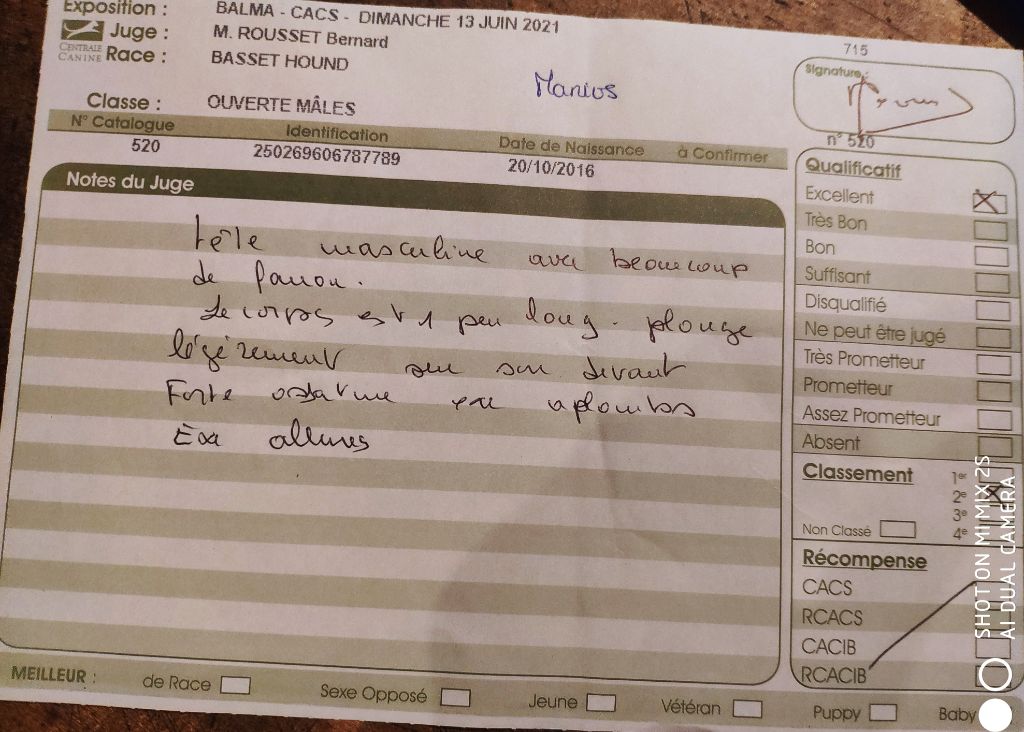 Exposition : BALMA - CACS - DIMANCHE 13 JUIN 2021
Juge : M. ROUSSET Bernard
CENTRALE CANINE
Race : BASSET HOUND
Manios
715
Signature :
Classe : OUVERTE MÂLES
N° Catalogue Identification Date de Naissance à Confirmer
520 250269606787789 20/10/2016
n° 520
Notes du Juge
tête masculine avec beaucoup
de fanon.
Le corps est 1 peu long. plonge
légèrement sur son devant
Forte ossature exc aplombs
Exc allures
Qualificatif
Excellent
Très Bon
Bon
Suffisant
Disqualifié
Ne peut être jugé
Très Prometteur
Prometteur
Assez Prometteur
Absent
Classement
1er
2e
3e
4e
Non Classé
Récompense
CACS
RCACS
CACIB
RCACIB
MEILLEUR : de Race Sexe Opposé Jeune Vétéran Puppy Baby
SHOT ON MI MIX 2S
AI DUAL CAMERA